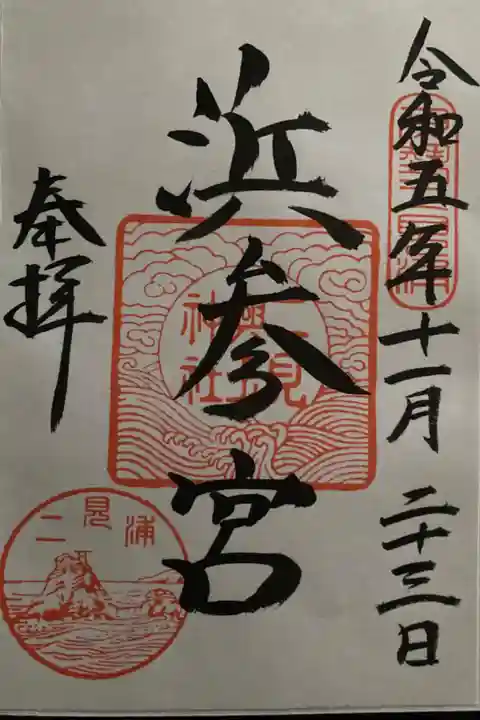 令和五年十一月二十三日
浜参宮
奉拝
二見興玉神社
二見浦